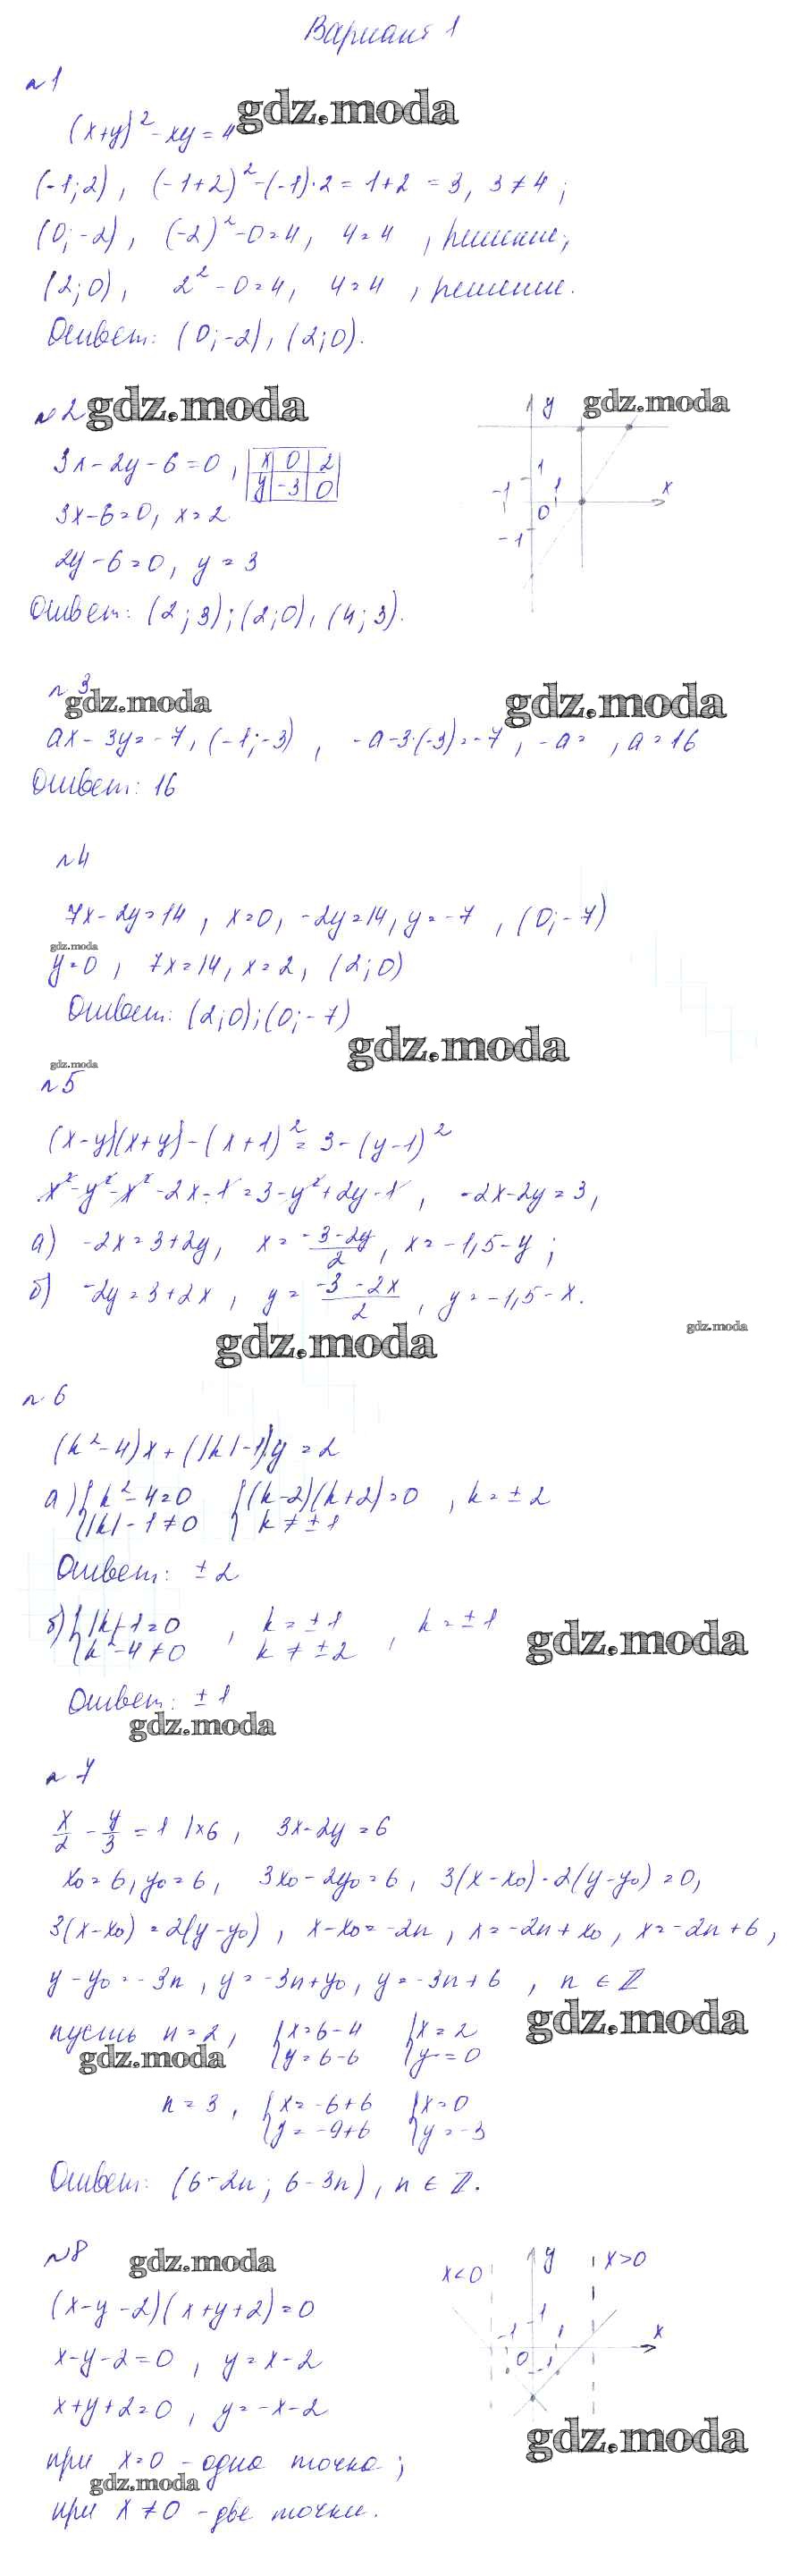 Вариант 1
№1
gdz.moda
(x+y)² - xy = 4
(-1;2), (-1+2)² - (-1)·2 = 1+2 = 3, 3 ≠ 4;
(0;-2), (-2)² - 0 = 4, 4 = 4, решение;
(2;0), 2² - 0 = 4, 4 = 4, решение.
Ответ: (0;-2), (2;0).
№2 gdz.moda
y gdz.moda
3x - 2y - 6 = 0, x 0 2
y -3 0
1 -1 1 x 0 -1
3x - 6 = 0, x = 2
2y - 6 = 0, y = 3
Ответ: (2;3); (2;0), (4;3).
№3
gdz.moda gdz.moda
ax - 3y = -7, (-1;-3), -a - 3·(-3) = -7, -a = , a = 16
Ответ: 16
№4
7x - 2y = 14, x = 0, -2y = 14, y = -7, (0;-7)
gdz.moda
y = 0, 7x = 14, x = 2, (2;0)
Ответ: (2;0); (0;-7)
gdz.moda
gdz.moda
№5
(x-y)(x+y) - (x+1)² = 3 - (y-1)²
x² - y² - x² - 2x - 1 = 3 - y² + 2y - 1, -2x - 2y = 3,
а) -2x = 3 + 2y, x = (-3-2y)/2, x = -1,5 - y;
б) -2y = 3 + 2x, y = (-3-2x)/2, y = -1,5 - x.
gdz.moda
gdz.moda
№6
(k² - 4)x + (|k| - 1)y = 2
а) { k² - 4 = 0 { (k-2)(k+2) = 0, k = ±2
|k| - 1 ≠ 0 k ≠ ±1
Ответ: ±2
б) { |k| - 1 = 0, k = ±1, k = ±1
k² - 4 ≠ 0 k ≠ ±2
gdz.moda
Ответ: ±1
gdz.moda
№7
x/2 - y/3 = 1 |×6, 3x - 2y = 6
x₀ = 6, y₀ = 6, 3x₀ - 2y₀ = 6, 3(x-x₀) - 2(y-y₀) = 0,
3(x-x₀) = 2(y-y₀), x - x₀ = -2n, x = -2n + x₀, x = -2n + 6,
y - y₀ = -3n, y = -3n + y₀, y = -3n + 6, n ∈ ℤ
gdz.moda
пусть n = 2, { x = 6 - 4 { x = 2
y = 6 - 6 y = 0
gdz.moda
n = 3, { x = -6 + 6 { x = 0
y = -9 + 6 y = -3
Ответ: (6-2n; 6-3n), n ∈ ℤ.
№8 gdz.moda
x<0 y x>0
(x-y-2)(x+y+2) = 0
1 -1 1 x 0 -1
x - y - 2 = 0, y = x - 2
x + y + 2 = 0, y = -x - 2
gdz.moda
при x = 0 - одна точка;
gdz.moda
при x ≠ 0 - две точки.